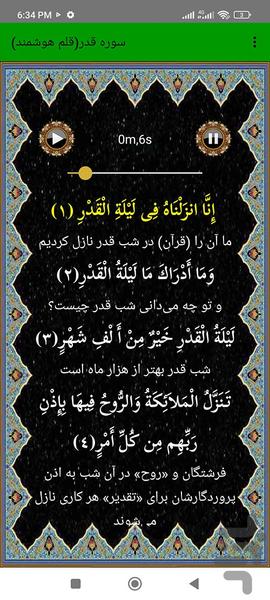 6:34 PM
4G
3
سوره قدر(قلم هوشمند)
0m,6s
إِنَّا انزَلْنَاهُ فِی لَیْلَةِ الْقَدْرِ (۱)
ما آن را (قرآن) در شب قدر نازل کردیم
وَمَا أَدْرَاكَ مَا لَیْلَةُ الْقَدْرِ(۲)
و تو چه می‌دانی شب قدر چیست؟
لَیْلَةُ الْقَدْرِ خَیْرٌ مِنْ أَلْفِ شَهْرٍ(۳)
شب قدر بهتر از هزار ماه است
تَنَزَّلُ الْمَلَائِكَةُ وَالرُّوحُ فِیهَا بِإِذْنِ
رَبِّهِم مِن كُلِّ أَمْرٍ(٤)
فرشتگان و «روح» در آن شب به اذن
پروردگارشان برای «تقدیر» هر کاری نازل
می‌شوند